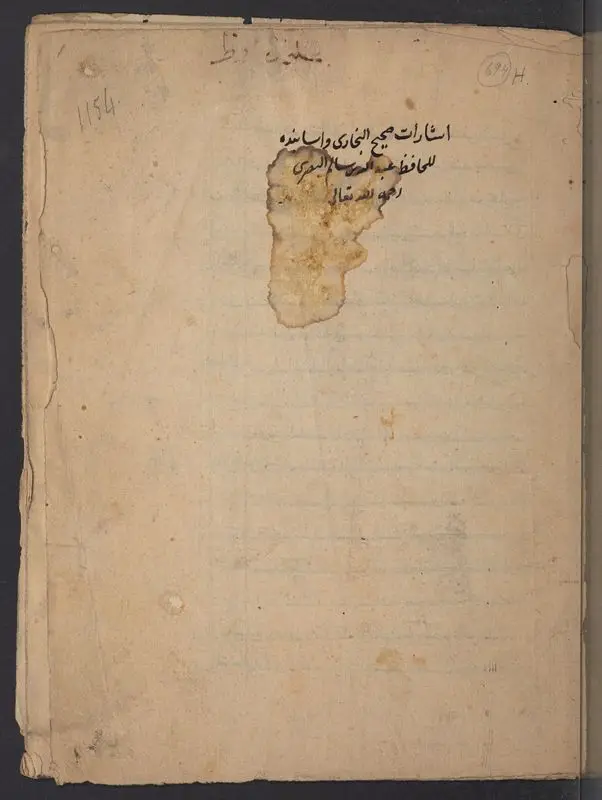 694 H.
1154
اشارات صحيح البخارى واسانيده
للحافظ عبد الله بن سالم البصرى
رحمه الله تعالى